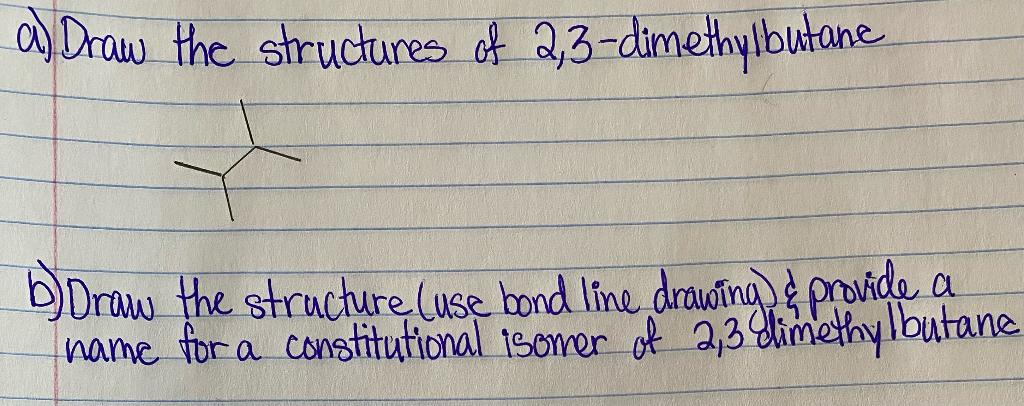 a) Draw the structures of 2,3-dimethylbutane
b) Draw the structure (use bond line drawing) & provide a
name for a constitutional isomer of 2,3 dimethylbutane